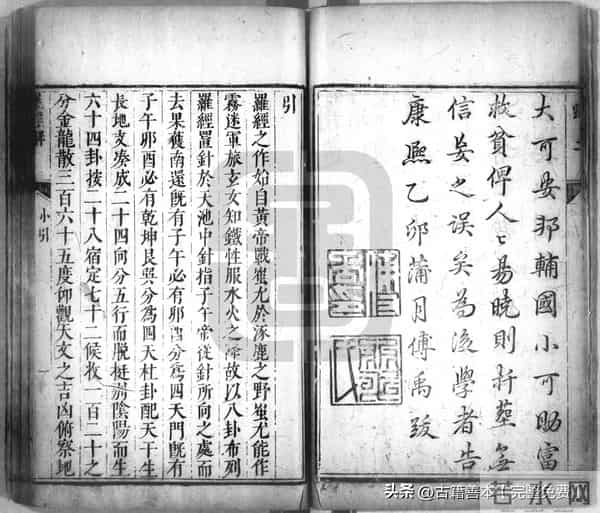 大可安邦輔國小可助富
救貧俾人〻易曉則扦葬無
信妄之誤矣為後學者告
康熙乙卯蒲月傅禹跋
引
羅經之作始自黃帝戰蚩尤於涿鹿之野蚩尤能作
霧迷軍旅玄女知鐵性服水火之滯故以八卦布列
羅經置針於天池中針指子午帝從針所向之處而
去果獲南還旣有子午必有卯酉分爲四天門旣有
子午卯酉必有乾坤艮巽分為四天柱卦配天干生
長地支湊成二十四向分五行而脫梃剖陰陽而生
六十四卦按二十八宿定七十二候收一百二十之
分金龍散三百六十五度仰觀天文之吉凶俯察地
小引
一
头条 @古籍善本王完整免费